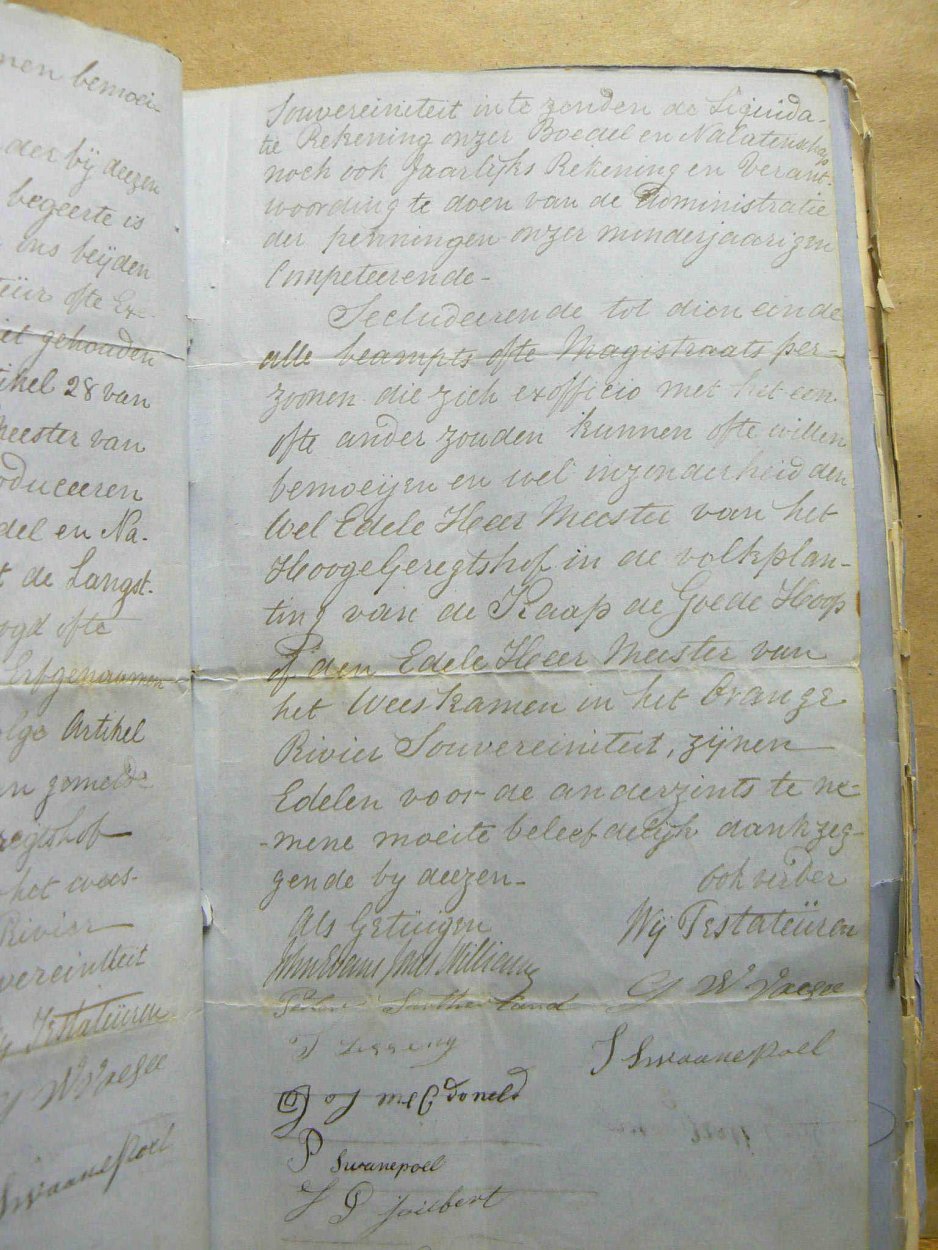 nen bemoei-
der bij deezen
begeerte is
ons beijden
teür ofte Exe-
iet gehouden
tikel 28 van
Meester van
oduceeren
del en Na-
t de Langst-
ogd ofte
Erfgenaamen
olge Artikel
an gemelde
regtshof
het wees-
Rivier
vereiniteit
Testateüren
J W Vaegee
Swaanepoel
Souvereiniteit in te zenden de Liquida-
tie Rekening onzer Boedel en Nalatenschap
noch ook Jaarlijks Rekening en Verant-
woording te doen van de Administratie
der penningen onzer minderjaarigen
Competeerende-
Secludeerende tot dien einde
alle beampts ofte Magistraats per-
zoonen die zich exofficio met het een
ofte ander zouden kunnen ofte willen
bemoeijen en wel inzonderheid den
Wel Edele Heer Meester van het
Hooge Geregtshof in de volkplan-
ting van de Kaap de Goede Hoop
of den Edele Heer Meester van
het Wees Kamen in het Orange
Rivier Souvereiniteit, zijnen
Edelen voor de anderzints te ne-
-mene moeite beleefdelijk dankzeg-
gende by deezen- ook verder
Als Getüigen Wij Testateüren
John Evans Williams
Sutherland W
J Swaanepoel
J mcC donald
P Swanepoel
J P Joubert